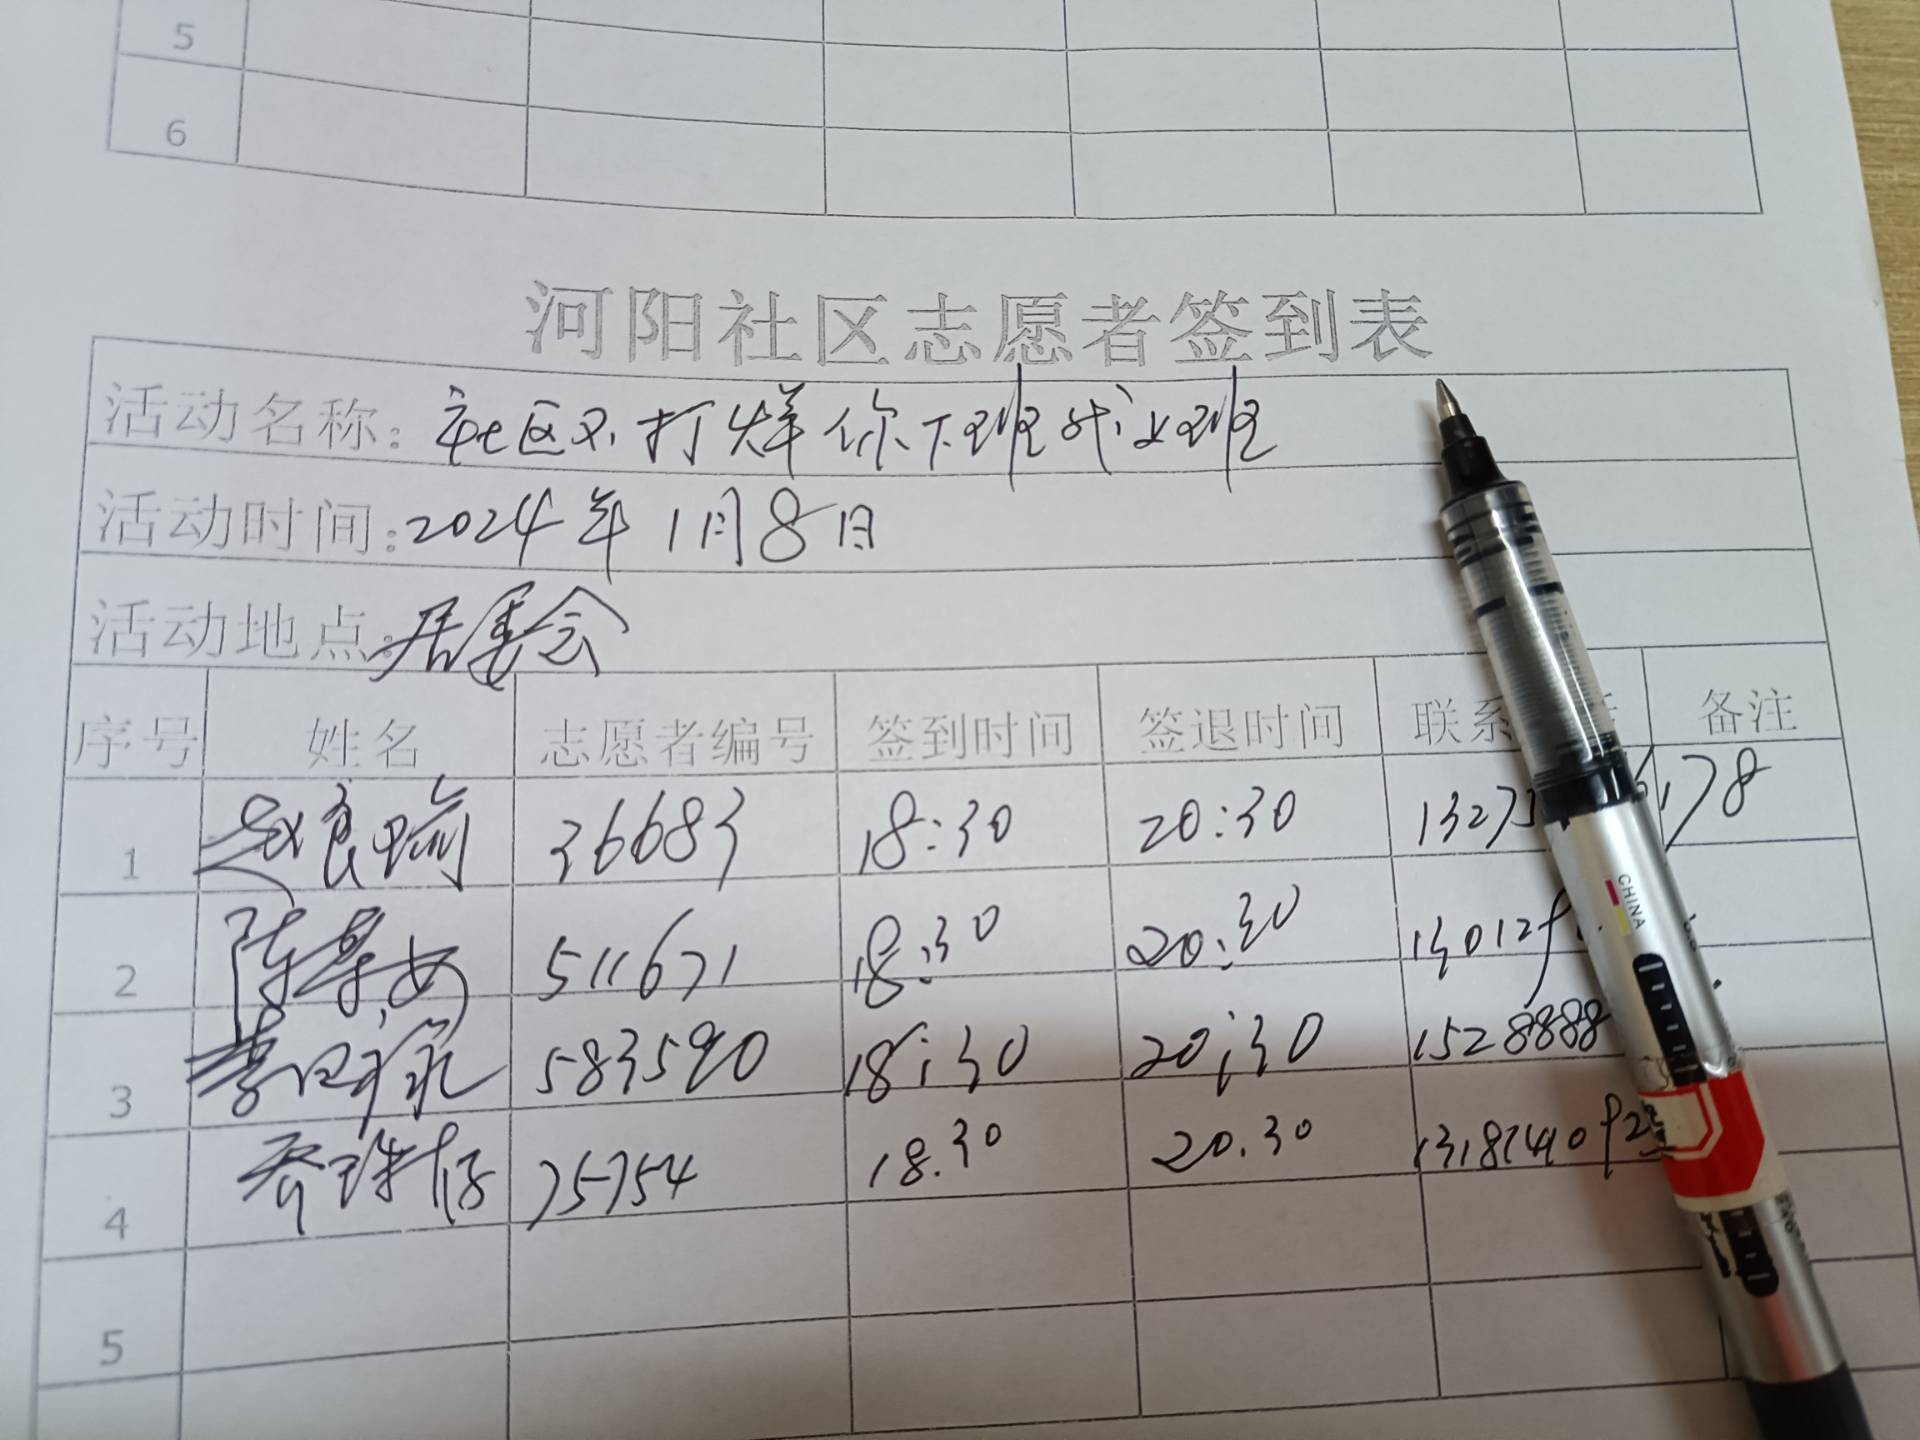 5
6
河阳社区志愿者签到表
活动名称: 社区不打烊你下班我上班
活动时间: 2024年1月8日
活动地点: 居委会
序号 姓名 志愿者编号 签到时间 签退时间 联系 备注
1 36683 18:30 20:30 13273 178
2 陈 511671 18:30 20:30 13012
3 李 583590 18:30 20:30 1528888
4 乔 75754 18.30 20.30
5
CHINA